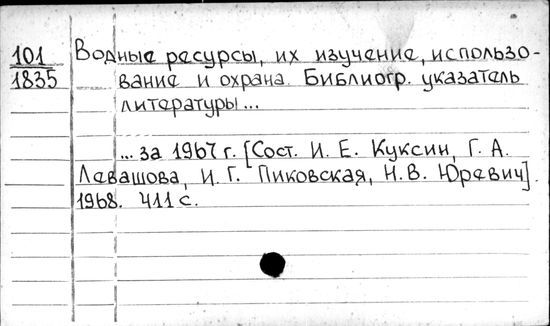 101 Водные ресурсы, их изучение, использо-
1835 вание и охрана. Библиогр. указатель
литературы...
... за 1967 г. [Сост. И. Е. Куксин, Г. А.
Левашова, И. Г. Пиковская, Н. В. Юревич].
1968. 411 с.